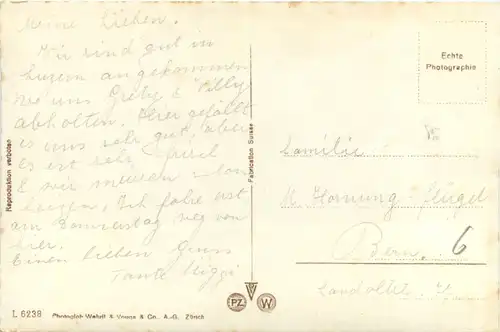 Meine Lieben.
Wir sind gut in
Luzern angekommen
wo uns Grety & Willy
abholten. Hier gefällt
es uns sehr gut, aber
Es ist sehr frisch
& wir
Ich fahre erst
am Donnerstag weg von
hier.
Einen lieben Gruss
Tante
Echte
Photographie
Familie
M. Hornung-Flügel
Bern. 6
Reproduktion verboten
Fabrication Suisse
PZ W
L 6238 Photoglob-Wehrli & Vouga & Co. A.-G. Zürich